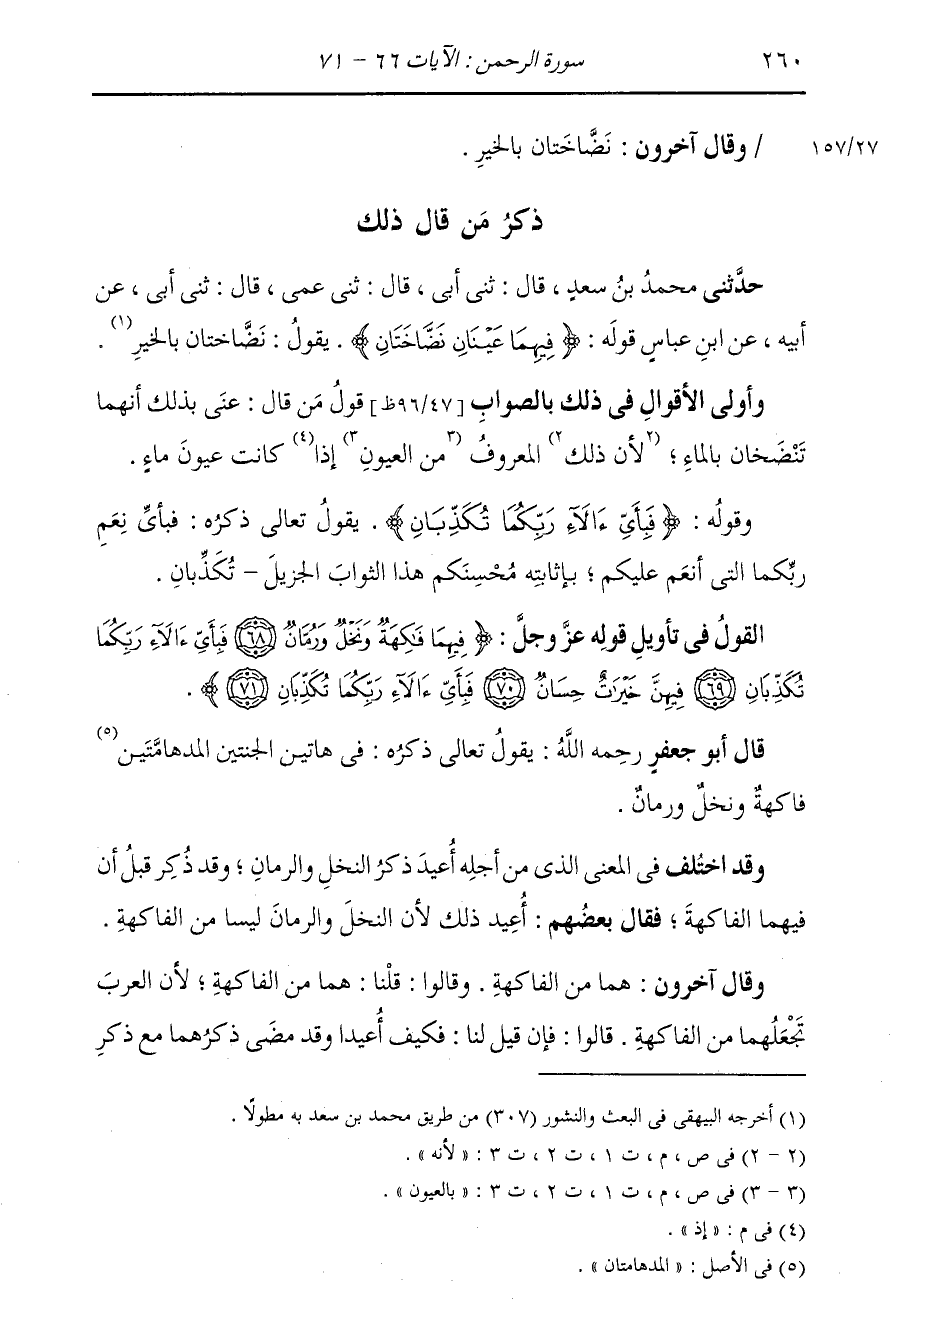 ٢٦٠ سورة الرحمن : الآيات ٦٦ - ٧١
١٥٧/٢٧ / وقال آخرون : نَضَّاخَتان بالخيرِ .
ذكرُ مَن قال ذلك
حدَّثنى محمدُ بنُ سعدٍ ، قال : ثنى أبى ، قال : ثنى عمى ، قال : ثنى أبى ، عن
أبيه ، عن ابنِ عباسٍ قولَه : ﴿ فِيهِمَا عَيْنَانِ نَضَّاخَتَانِ ﴾ . يقولُ : نَضَّاختان بالخيرِ(١) .
وأولى الأقوالِ فى ذلك بالصوابِ [٩٦/٤٧ظ] قولُ مَن قال : عنَى بذلك أنهما
تَنْضَخان بالماءِ ؛ (٢لأن ذلك٢) المعروفُ (٣من العيونِ٣) إذا(٤) كانت عيونَ ماءٍ .
وقولُه : ﴿ فَبِأَيِّ ءَالَآءِ رَبِّكُمَا تُكَذِّبَانِ ﴾ . يقولُ تعالى ذكرُه : فبأىِّ نِعَمِ
ربِّكما التى أنعَم عليكم ؛ بإثابتِه مُحْسِنَكم هذا الثوابَ الجزيلَ - تُكَذِّبانِ .
القولُ فى تأويلِ قولِه عزَّ وجلَّ : ﴿ فِيهِمَا فَٰكِهَةٌ وَنَخْلٌ وَرُمَّانٌ ٦٨ فَبِأَيِّ ءَالَآءِ رَبِّكُمَا
تُكَذِّبَانِ ٦٩ فِيهِنَّ خَيْرَٰتٌ حِسَانٌ ٧٠ فَبِأَيِّ ءَالَآءِ رَبِّكُمَا تُكَذِّبَانِ ٧١ ﴾ .
قال أبو جعفرٍ رحِمه اللَّهُ : يقولُ تعالى ذكرُه : فى هاتين الجنتين المدهامَّتَين(٥)
فاكهةٌ ونخلٌ ورمانٌ .
وقد اختُلف فى المعنى الذى من أجلِه أُعيدَ ذكرُ النخلِ والرمانِ ؛ وقد ذُكِر قبلُ أن
فيهما الفاكهةَ ؛ فقال بعضُهم : أُعِيد ذلك لأن النخلَ والرمانَ ليسا من الفاكهةِ .
وقال آخرون : هما من الفاكهةِ . وقالوا : قلْنا : هما من الفاكهةِ ؛ لأن العربَ
تَجْعَلُهما من الفاكهةِ . قالوا : فإن قيل لنا : فكيف أُعيدا وقد مضَى ذكرُهما مع ذكرِ
(١) أخرجه البيهقى فى البعث والنشور (٣٠٧) من طريق محمد بن سعد به مطولًا .
(٢ - ٢) فى ص ، م ، ت ١ ، ت ٢ ، ت ٣ : « لأنه » .
(٣ - ٣) فى ص ، م ، ت ١ ، ت ٢ ، ت ٣ : « بالعيون » .
(٤) فى م : « إذ » .
(٥) فى الأصل : « المدهامتان » .